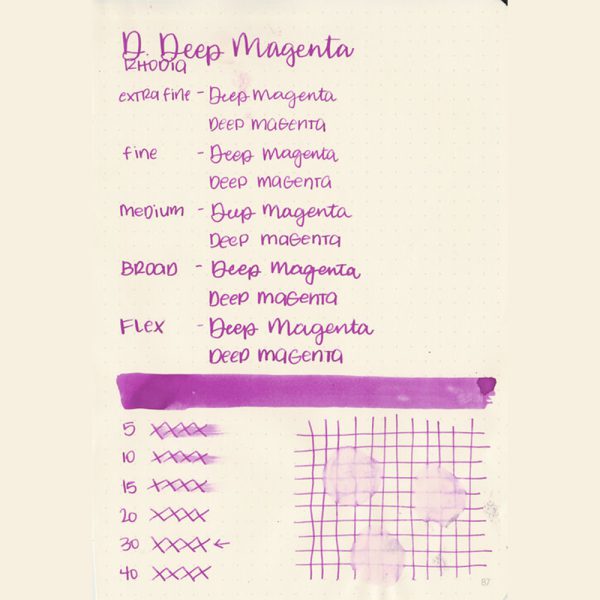 D. Deep Magenta
RHODIA
extra fine - Deep Magenta
DEEP MAGENTA
fine - Deep Magenta
DEEP MAGENTA
MEDIUM - Deep Magenta
DEEP MAGENTA
BROAD - Deep Magenta
DEEP MAGENTA
FLEX - Deep Magenta
DEEP MAGENTA
5 XXXX
10 XXXX
15 XXXX
20 XXXX
30 XXXX ←
40 XXXX
87